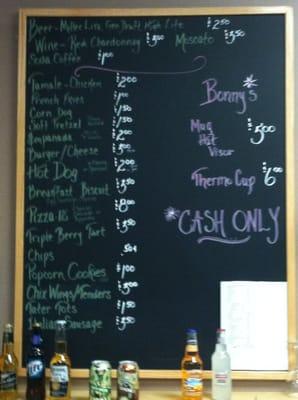 Beer- Miller Lite, Gen Draft High Life $2.50
Wine- Red Chardonnay $3.00 Moscato $3.50
Soda Coffee $1.00
Tamale-Chicken $2.00
French Fries $1.00
Corn Dog $1.50
Soft Pretzel $1.50
Empanada $2.00
Burger/Cheese $3.00
Hot Dog $2.00
Breakfast Biscuit $3.50
Pizza-16 $8.00
Triple Berry Tart $3.50
Chips .50¢
Popcorn Cookies $1.00
Chix Wings/Tenders $3.00
Tater Tots $1.50
Italian Sausage $3.50
Bonny's
Mug
Hat
Visor
$5.00
Thermo Cup $6.00
*CASH ONLY